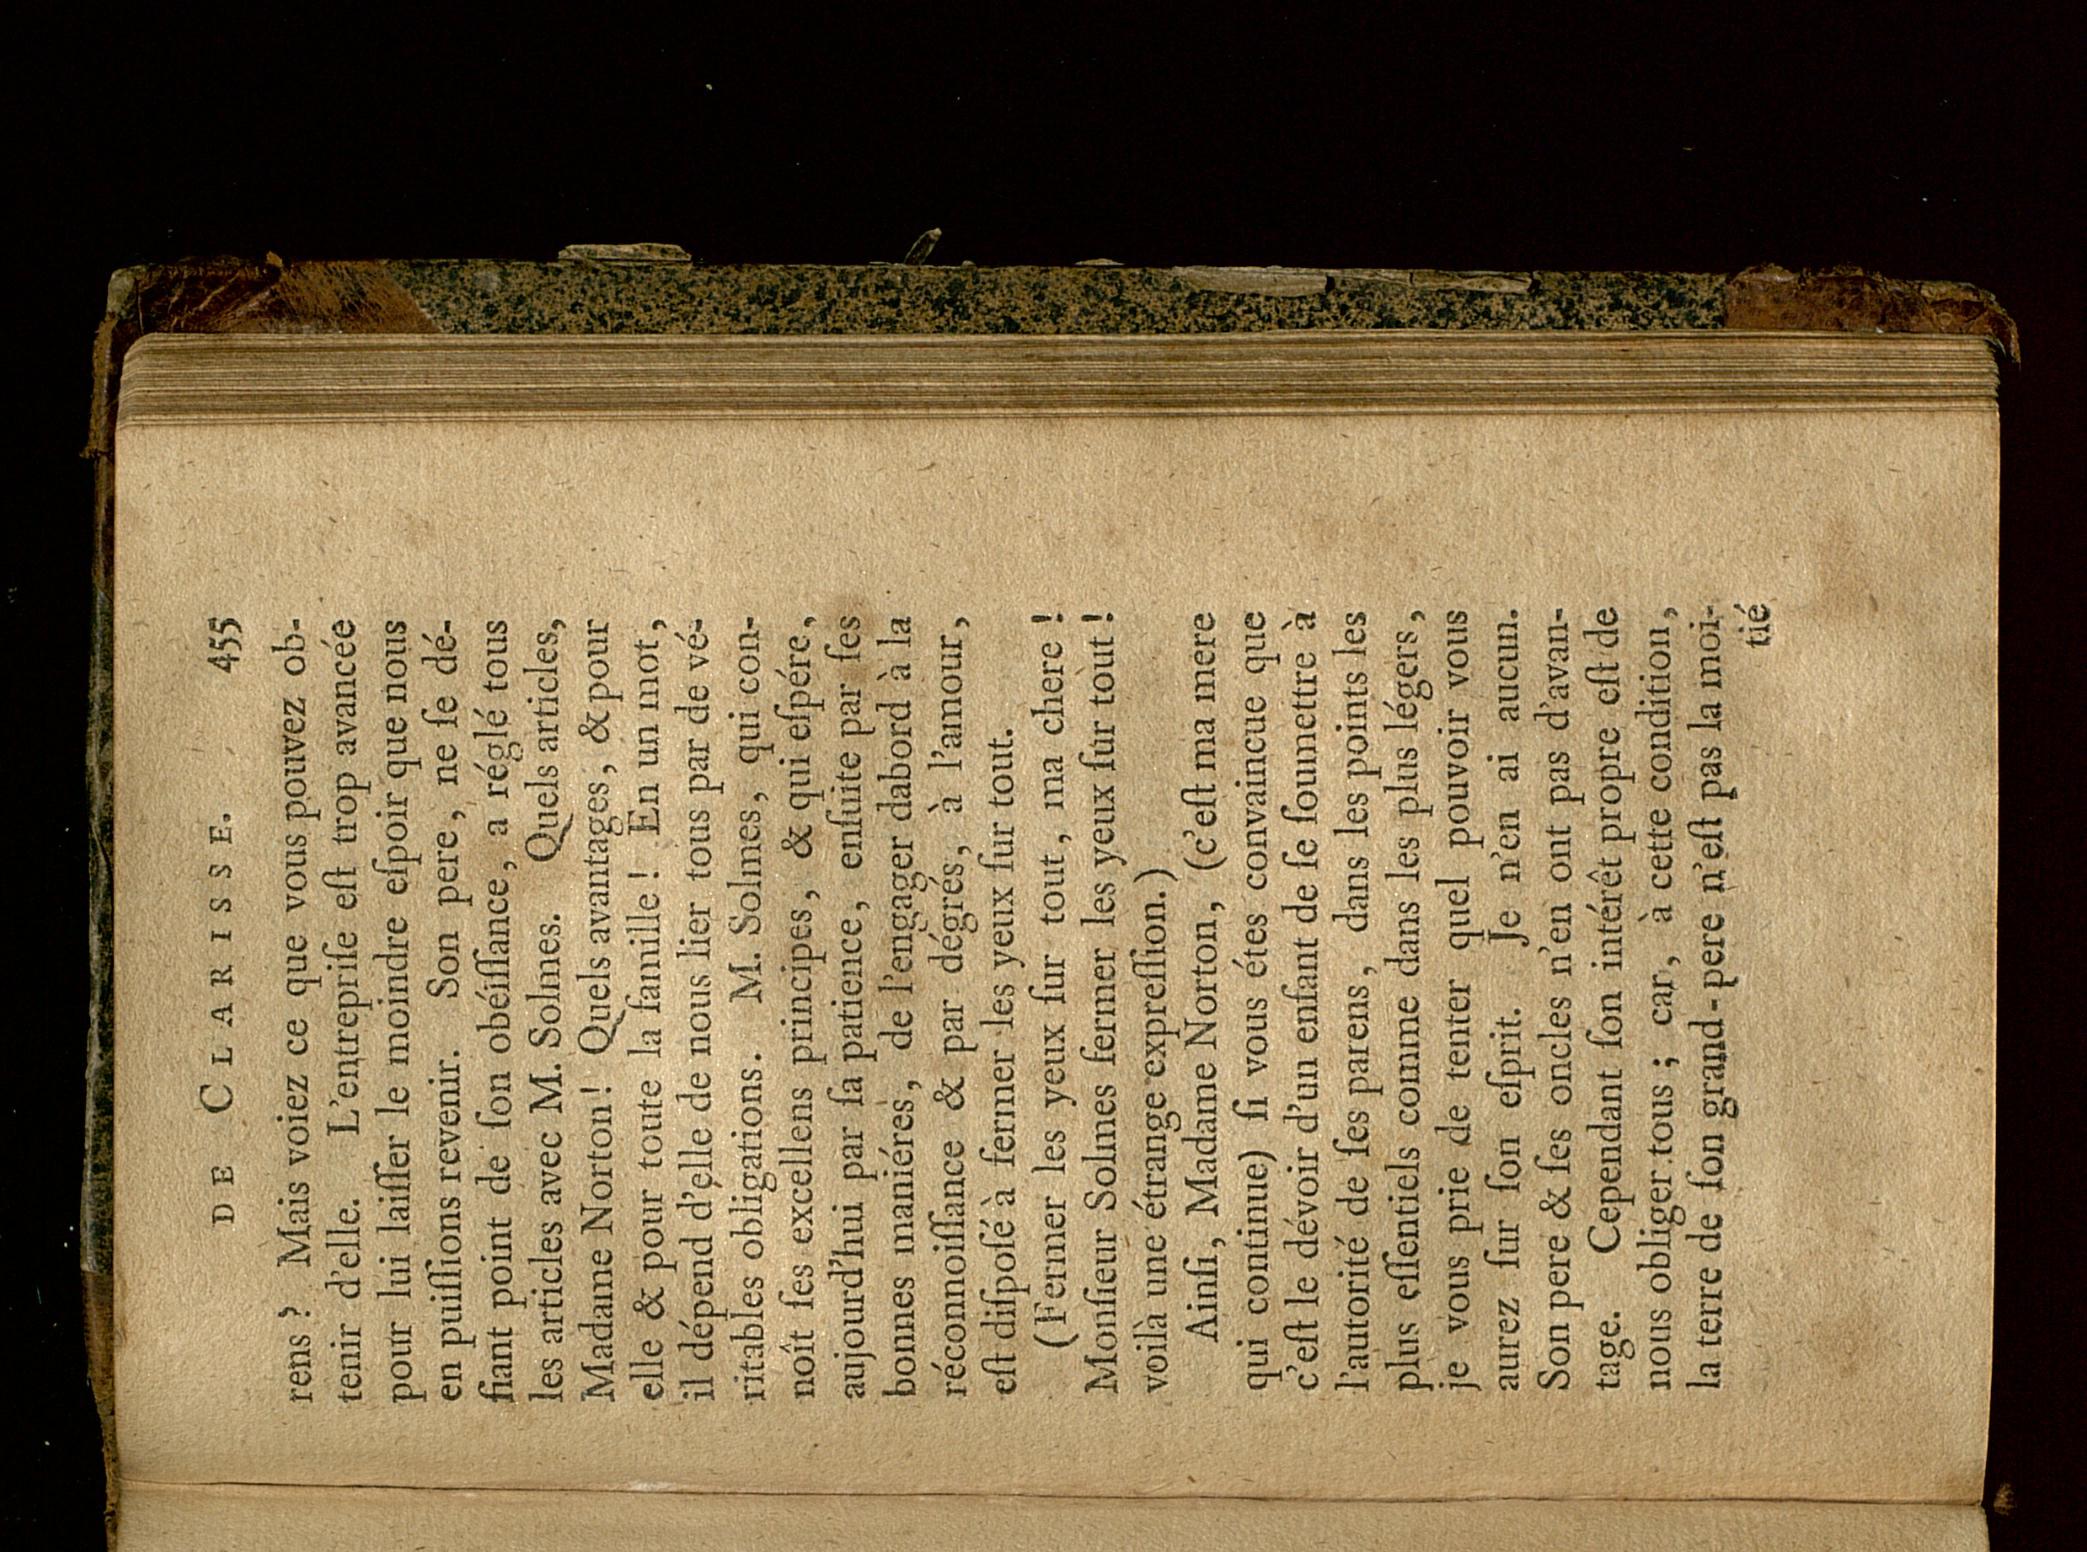 DE CLARISSE. 455
rens ? Mais voiez ce que vous pouvez ob-
tenir d'elle. L'entrepriſe eſt trop avancée
pour lui laiſſer le moindre eſpoir que nous
en puiſſions revenir. Son pere, ne ſe dé-
fiant point de ſon obéiſſance, a réglé tous
les articles avec M. Solmes. Quels articles,
Madame Norton! Quels avantages, & pour
elle & pour toute la famille! En un mot,
il dépend d'elle de nous lier tous par de vé-
ritables obligations. M. Solmes, qui con-
noît ſes excellens principes, & qui eſpére,
aujourd'hui par ſa patience, enſuite par ſes
bonnes maniéres, de l'engager dabord à la
réconnoiſſance & par dégrés, à l'amour,
eſt diſpoſé à fermer les yeux ſur tout.
(Fermer les yeux ſur tout, ma chere!
Monſieur Solmes fermer les yeux ſur tout!
voilà une étrange expreſſion.)
Ainſi, Madame Norton, (c'eſt ma mere
qui continue) ſi vous étes convaincue que
c'eſt le dévoir d'un enfant de ſe ſoumettre à
l'autorité de ſes parens, dans les points les
plus eſſentiels comme dans les plus légers,
je vous prie de tenter quel pouvoir vous
aurez ſur ſon eſprit. Je n'en ai aucun.
Son pere & ſes oncles n'en ont pas d'avan-
tage. Cependant ſon intérêt propre eſt de
nous obliger tous; car, à cette condition,
la terre de ſon grand-pere n'eſt pas la moi-
tié